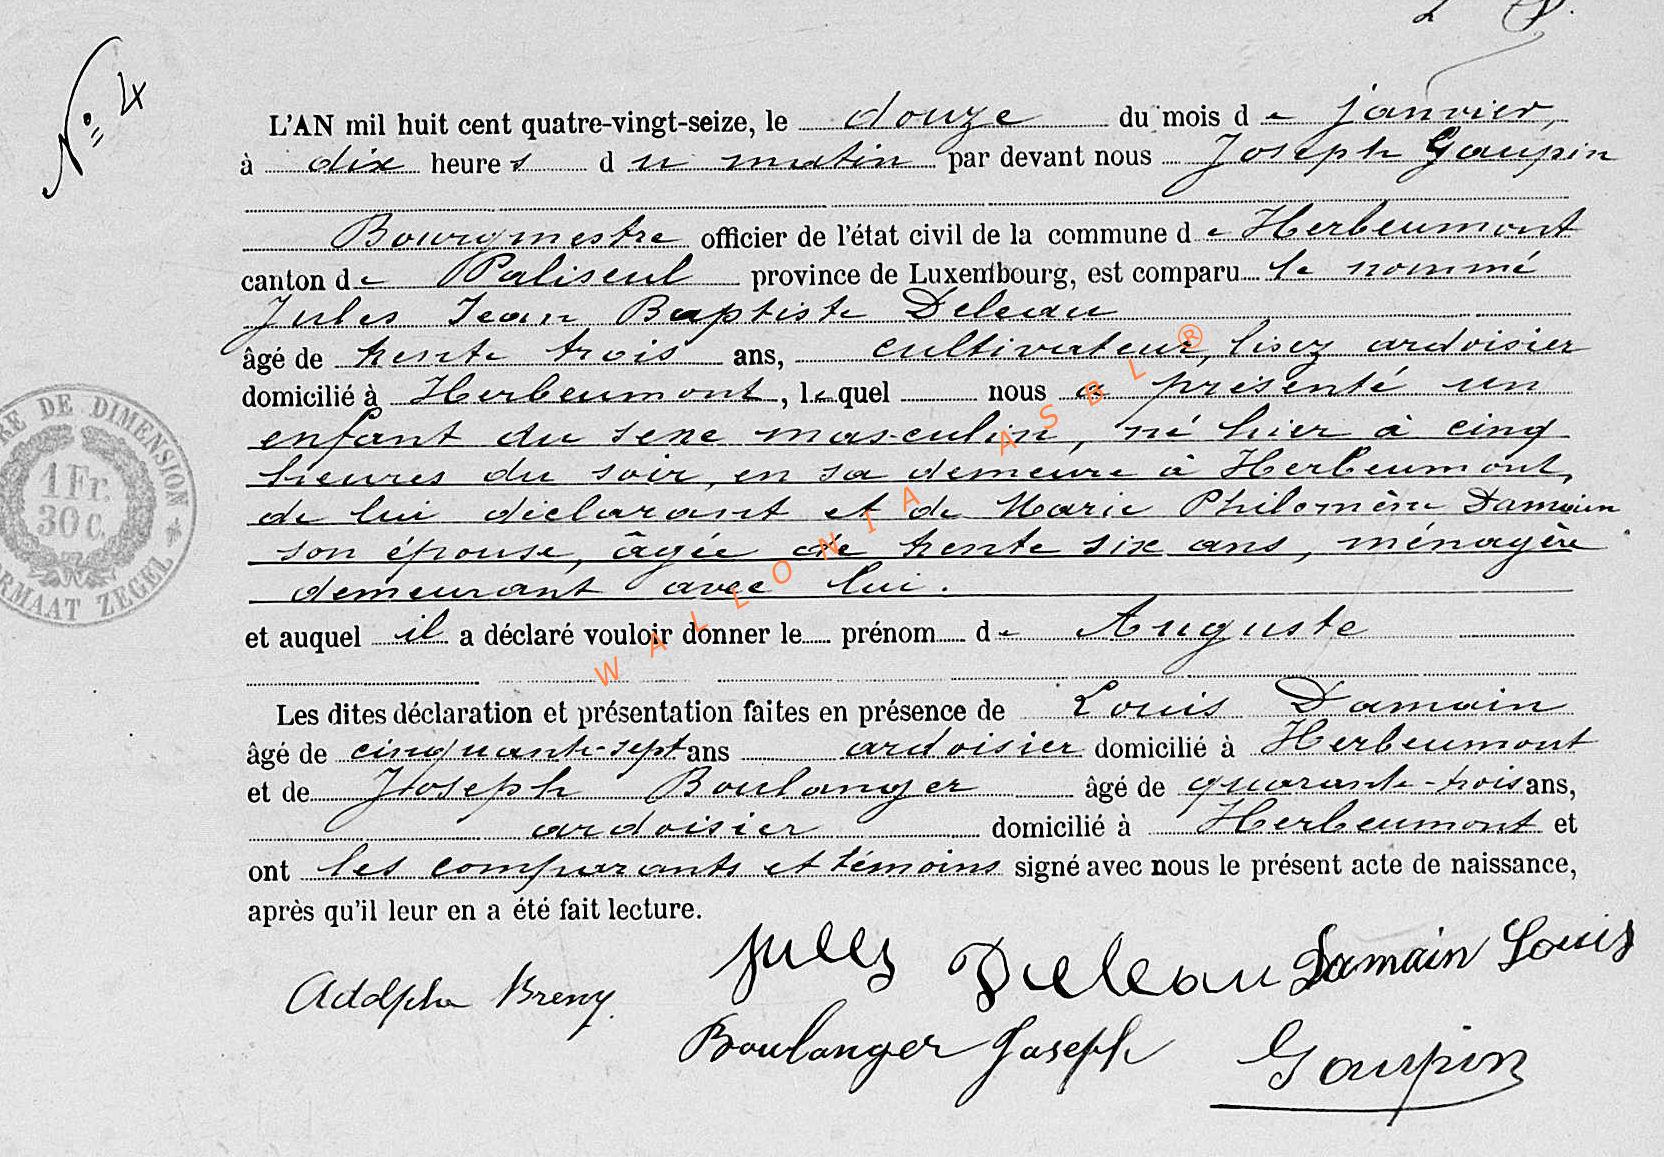 Nº 4
L'AN mil huit cent quatre-vingt-seize, le douze du mois de janvier,
à dix heures du matin par devant nous Joseph Goupin
Bourgmestre officier de l'état civil de la commune de Herbeumont
canton de Paliseul province de Luxembourg, est comparu le nommé
Jules Jean Baptiste Deleau
âgé de trente trois ans, cultivateur, lisez ardoisier
domicilié à Herbeumont, lequel nous a présenté un
enfant du sexe masculin, né hier à cinq
heures du soir, en sa demeure à Herbeumont,
de lui déclarant et de Marie Philomène Damain
son épouse, âgée de trente six ans, ménagère
demeurant avec lui.
et auquel il a déclaré vouloir donner le prénom de Auguste
Les dites déclaration et présentation faites en présence de Louis Damain
âgé de cinquante-sept ans ardoisier domicilié à Herbeumont
et de Joseph Boulanger âgé de quarante-trois ans,
ardoisier domicilié à Herbeumont et
ont les comparants et témoins signé avec nous le présent acte de naissance,
après qu'il leur en a été fait lecture.
Jules Deleau Damain Louis
Adolphe Breny
Boulanger Joseph Goupin
DE DIMENSION
1 Fr.
30 c.
ZEGEL
WALLONIA ASBL ®